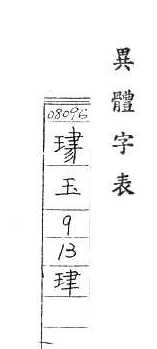 異體字表
08096
玉
9
13
珒